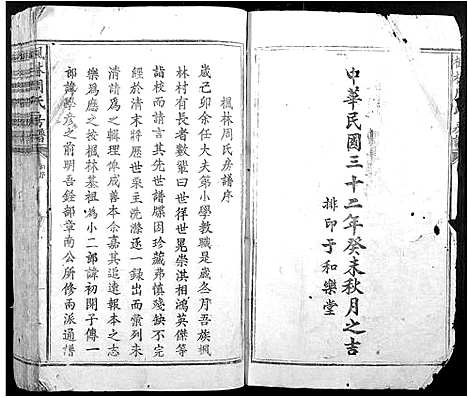 中華民國三十二年癸未秋月之吉
排印于和樂堂
楓林周氏房譜序
歲己卯余任大夫第小學教職是歲冬月吾族楓
林村有長者數輩曰世徉世晃崇淇相鴻英傑等
詣校而請言其先世譜牒因珍藏弗慎殘缺不完
經於清末將歷世彙主洗滌逐一錄出而彙列未
清請爲之輯理俾成善本余嘉其追遠報本之志
樂爲應之按楓林基祖爲小二部諱初開子傳一
部諱勝彥之前明吾經部章南公所修兩派通譜
楓林周氏房譜